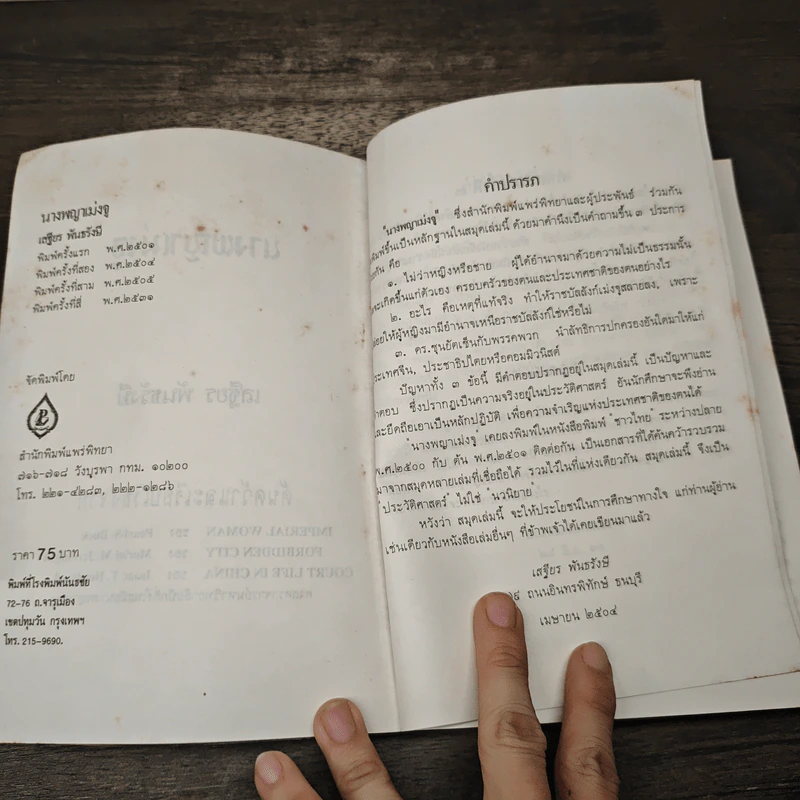 นางพญาเม่งจู
เสฐียร พันธรังษี
พิมพ์ครั้งแรก พ.ศ.๒๕๐๑
พิมพ์ครั้งที่สอง พ.ศ.๒๕๐๔
พิมพ์ครั้งที่สาม พ.ศ.๒๕๐๕
พิมพ์ครั้งที่สี่ พ.ศ.๒๕๓๑
จัดพิมพ์โดย
สำนักพิมพ์แพร่พิทยา
๗๑๖-๗๑๘ วังบูรพา กทม. ๑๐๒๐๐
โทร. ๒๒๑-๔๒๘๓, ๒๒๒-๑๒๘๖
ราคา 75 บาท
พิมพ์ที่โรงพิมพ์นันธชัย
72-76 ถ.จารุเมือง
เขตปทุมวัน กรุงเทพฯ
โทร. 215-9690.
คำปรารภ
"นางพญาเม่งจู" ซึ่งสำนักพิมพ์แพร่พิทยาและผู้ประพันธ์ ร่วมกัน
พิมพ์ขึ้นเป็นหลักฐานในสมุดเล่มนี้ ด้วยมาคำนึงเป็นคำถามขึ้น ๓ ประการ
กัน คือ
๑. ไม่ว่าหญิงหรือชาย ผู้ได้อำนาจมาด้วยความไม่เป็นธรรมนั้น
จะเกิดขึ้นแก่ตัวเอง ครอบครัวของตนและประเทศชาติของตนอย่างไร
๒. อะไร คือเหตุที่แท้จริง ทำให้ราชบัลลังก์เม่งจูสลายลง, เพราะ
ปล่อยให้ผู้หญิงมามีอำนาจเหนือราชบัลลังก์ใช่หรือไม่
๓. ดร.ซุนยัดเซ็นกับพรรคพวก นำลัทธิการปกครองอันใดมาให้แก่
ประเทศจีน, ประชาธิปไตยหรือคอมมิวนิสต์
ปัญหาทั้ง ๓ ข้อนี้ มีคำตอบปรากฏอยู่ในสมุดเล่มนี้ เป็นปัญหาและ
คำตอบ ซึ่งปรากฏเป็นความจริงอยู่ในประวัติศาสตร์ อันนักศึกษาจะพึงอ่าน
และยึดถือเอาเป็นหลักปฏิบัติ เพื่อความจำเริญแห่งประเทศชาติของตนได้
"นางพญาเม่งจู" เคยลงพิมพ์ในหนังสือพิมพ์ "ชาวไทย" ระหว่างปลาย
พ.ศ.๒๕๐๐ กับ ต้น พ.ศ.๒๕๐๑ ติดต่อกัน เป็นเอกสารที่ได้ค้นคว้ารวบรวม
มาจากสมุดหลายเล่มที่เชื่อถือได้ รวมไว้ในที่แห่งเดียวกัน สมุดเล่มนี้ จึงเป็น
"ประวัติศาสตร์" ไม่ใช่ "นวนิยาย"
หวังว่า สมุดเล่มนี้ จะให้ประโยชน์ในการศึกษาทางใจ แก่ท่านผู้อ่าน
เช่นเดียวกับหนังสือเล่มอื่นๆ ที่ข้าพเจ้าได้เคยเขียนมาแล้ว
เสฐียร พันธรังษี
ถนนอินทรพิทักษ์ ธนบุรี
เมษายน ๒๕๐๔